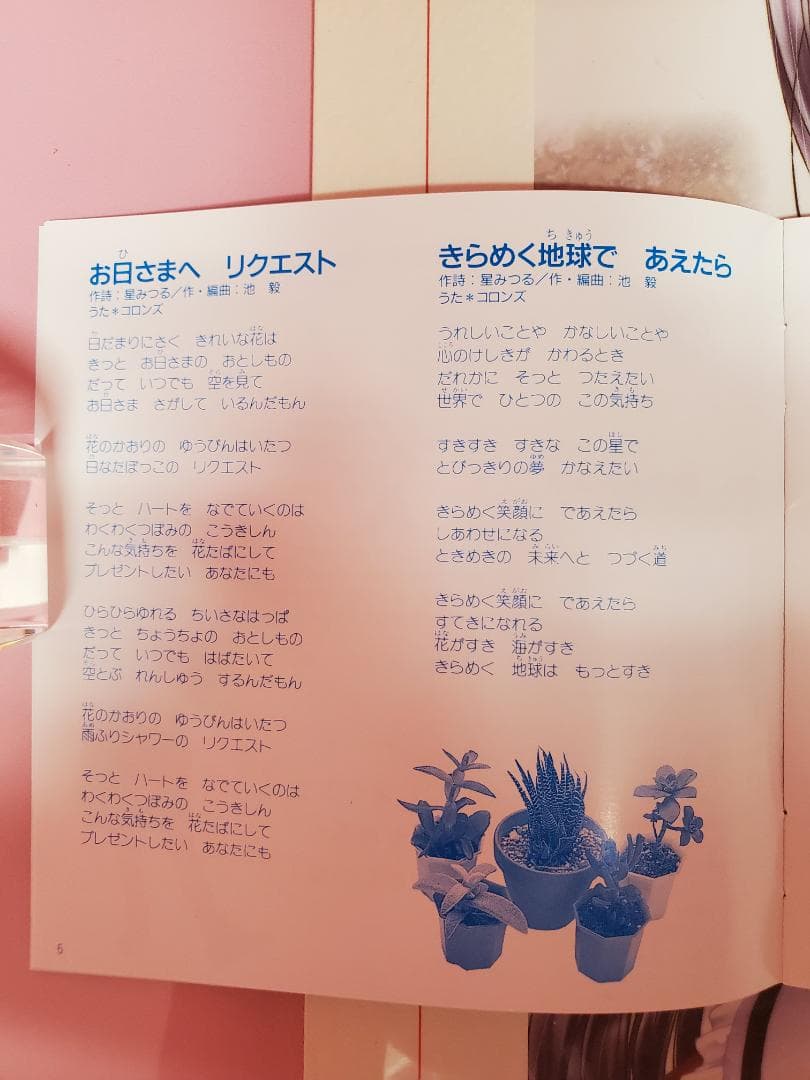 お日さまへ　リクエスト
作詩：星みつる／作・編曲：池　毅
うた＊コロンズ
日だまりにさく　きれいな花は
きっと　お日さまの　おとしもの
だって　いつでも　空を見て
お日さま　さがして　いるんだもん
花のかおりの　ゆうびんはいたつ
日なたぼっこの　リクエスト
そっと　ハートを　なでていくのは
わくわくつぼみの　こうきしん
こんな気持ちを　花たばにして
プレゼントしたい　あなたにも
ひらひらゆれる　ちいさなはっぱ
きっと　ちょうちょの　おとしもの
だって　いつでも　はばたいて
空とぶ　れんしゅう　するんだもん
花のかおりの　ゆうびんはいたつ
雨ふりシャワーの　リクエスト
そっと　ハートを　なでていくのは
わくわくつぼみの　こうきしん
こんな気持ちを　花たばにして
プレゼントしたい　あなたにも
6
きらめく地球で　あえたら
作詩：星みつる／作・編曲：池　毅
うた＊コロンズ
うれしいことや　かなしいことや
心のけしきが　かわるとき
だれかに　そっと　つたえたい
世界で　ひとつの　この気持ち
すきすき　すきな　この星で
とびっきりの夢　かなえたい
きらめく笑顔に　であえたら
しあわせになる
ときめきの　未来へと　つづく道
きらめく笑顔に　であえたら
すてきになれる
花がすき　海がすき
きらめく　地球は　もっとすき